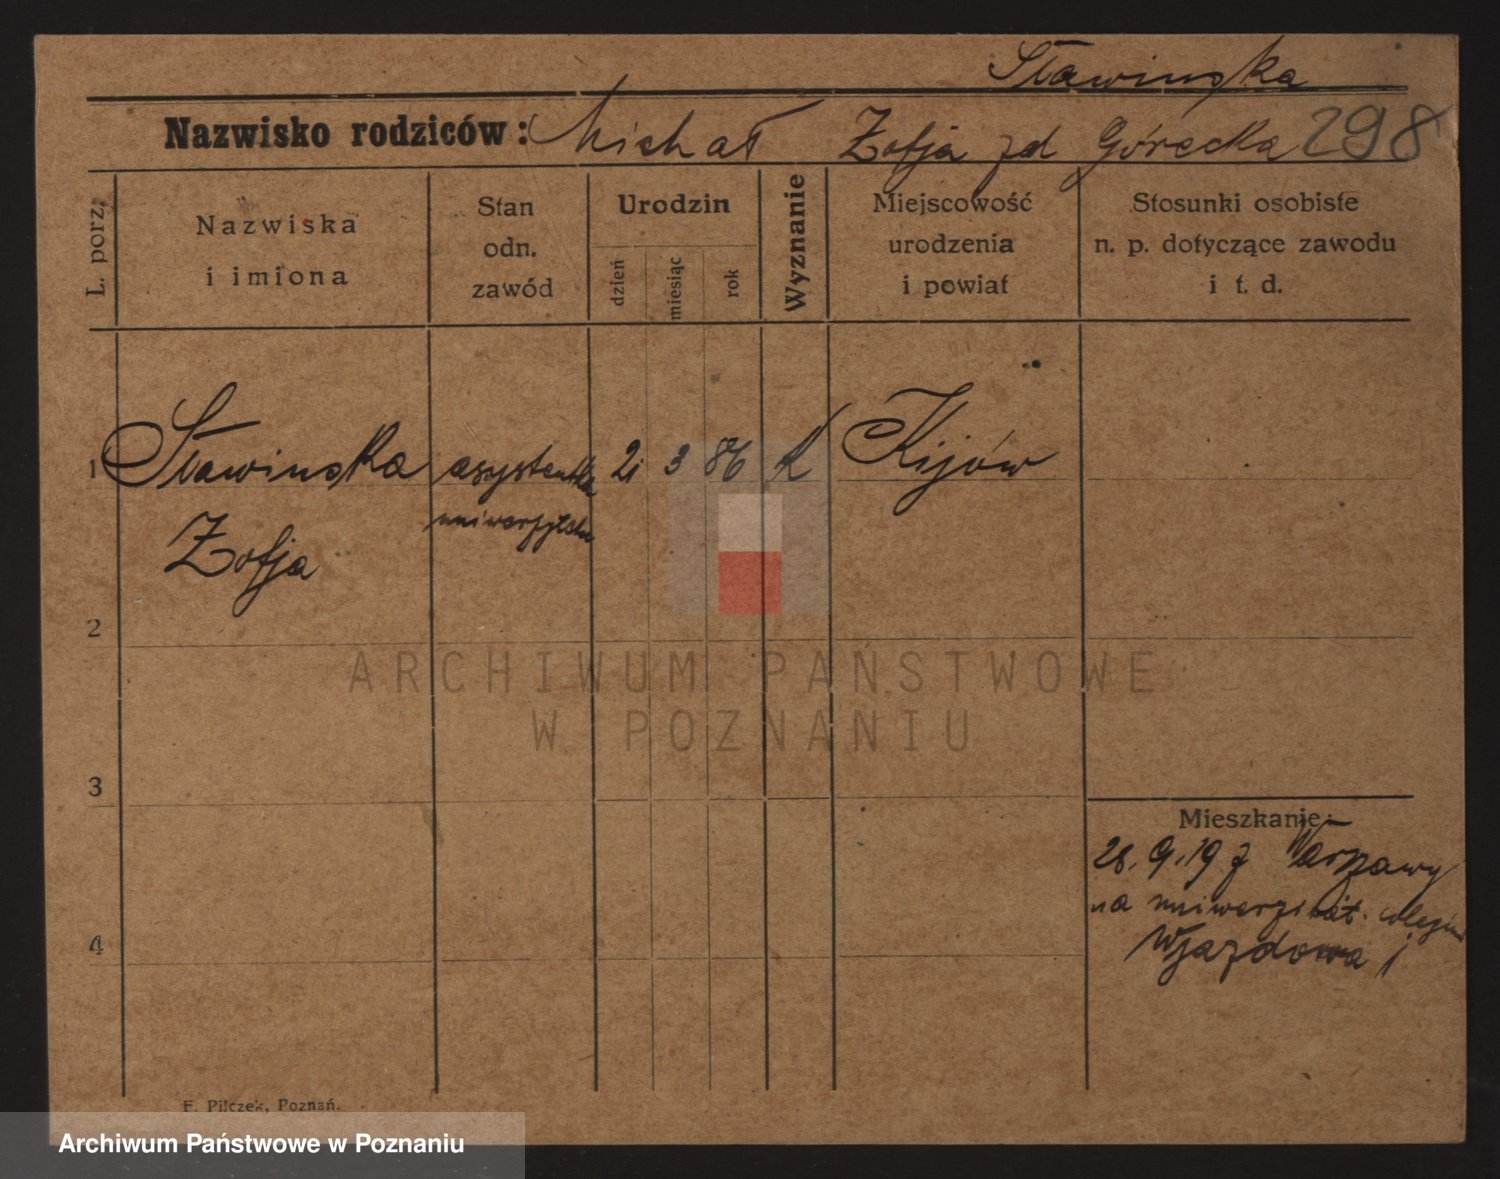 Sławinska
Nazwisko rodziców: Michał Zofja zd Górecka 298
L. porz.
Nazwiska
i imiona
Stan
odn.
zawód
Urodzin
dzień
miesiąc
rok
Wyznanie
Miejscowość
urodzenia
i powiat
Stosunki osobiste
n. p. dotyczące zawodu
i t. d.
1 Sławinska asystentka 2 3 86 K Kijów
uniwersytetu
Zofja
2
ARCHIWUM PAŃSTWOWE
W POZNANIU
3
Mieszkanie:
28.9.19 z Warszawy
na
4
Wjazdowa
F. Pilczek, Poznań.
Archiwum Państwowe w Poznaniu